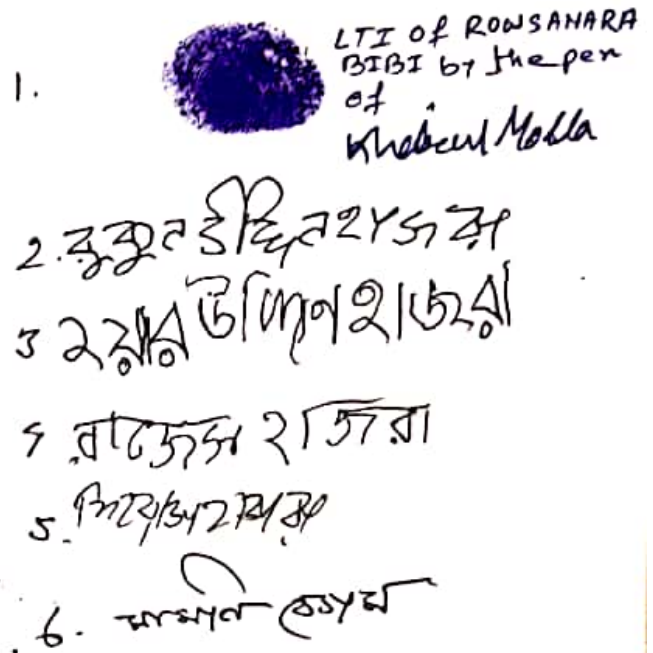 1.
LTI of ROWSANARA
BIBI by the pen
of
Khabirul Molla
2. রুকুনউদ্দিন হাজরা
3 হয়ার উদ্দিন হাজরা
4 রাজেস হাজরা
5. হাজরা
6. বেগম